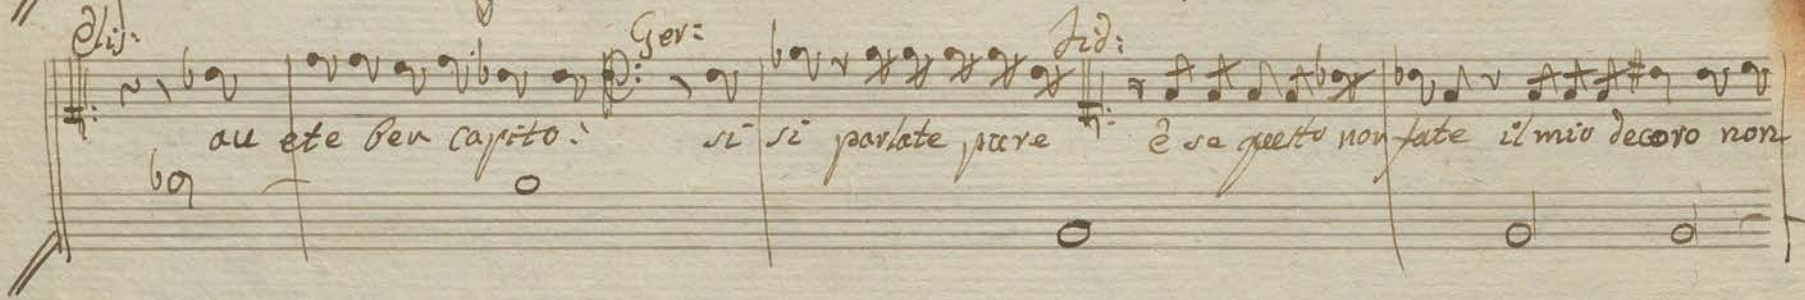 Elis: Ger: Fid:
au ete ben capito: si si parlate pure è se questo non fate il mio decoro non